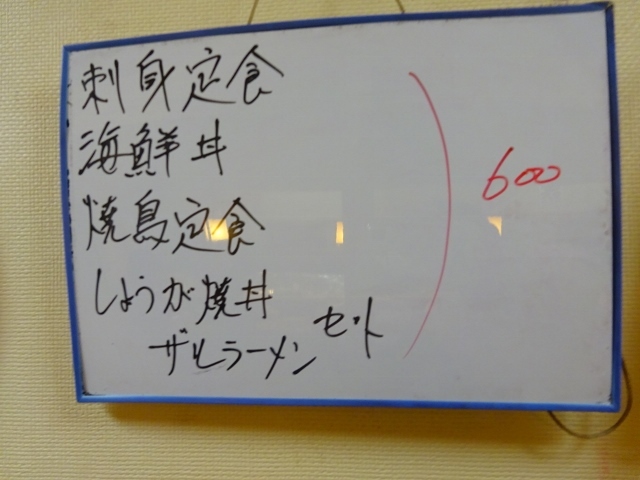 刺身定食
海鮮丼
焼鳥定食
しょうが焼丼
ザルラーメンセット
600